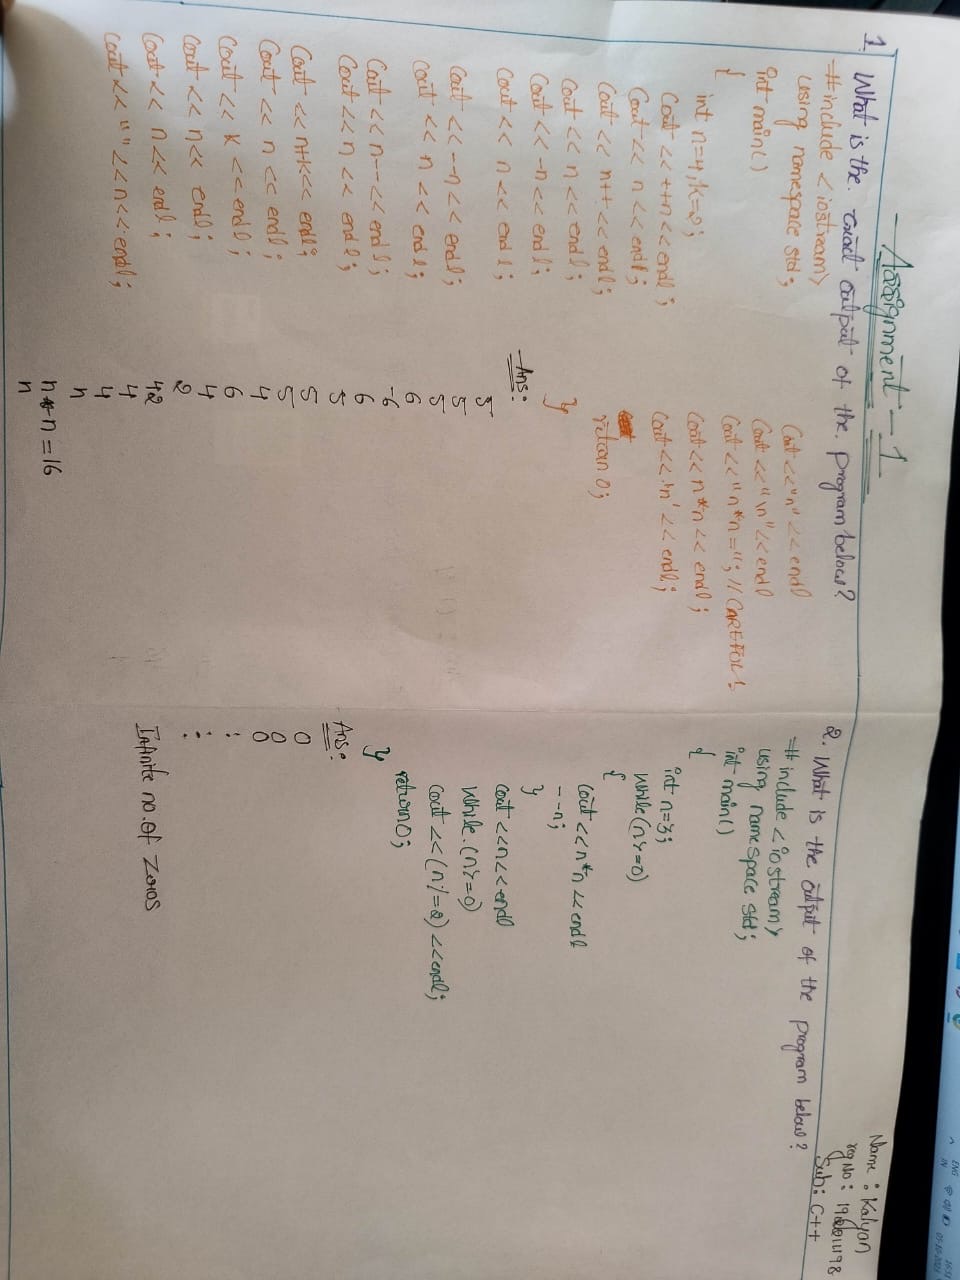 Assignment - 1
Name : Kalyan
reg No :
Sub: C++
1. What is the exact output of the program below?
#include <iostream>
using namespace std;
int main()
{
int n=4, k=2;
Cout << ++n << endl;
Cout << n << endl;
Cout << n++ << endl;
Cout << n << endl;
Cout << -n << endl;
Cout << n << endl;
Cout << --n << endl;
Cout << n << endl;
Cout << n-- << endl;
Cout << n << endl;
Cout << n+k << endl;
Cout << n << endl;
Cout << k << endl;
Cout << n << endl;
Cout << n << endl;
Cout << " " << n << endl;
Cout << "n" << endl
Cout << "\n" << endl
Cout << "n*n="; // CAREFUL!
Cout << n*n << endl;
Cout << 'n' << endl;
return 0;
}
Ans:
5
5
5
6
-6
6
5
5
5
4
6
4
2
42
4
4
n
n*n=16
n
2. What is the output of the program below?
#include <iostream>
using namespace std;
int main()
{
int n=3;
While (n>=0)
{
Cout << n*n << endl
--n;
}
Cout << n << endl
While (n>=0)
Cout << (n/=2) << endl;
return 0;
}
Ans:
0
0
0
:
:
:
Infinite no. of Zeros